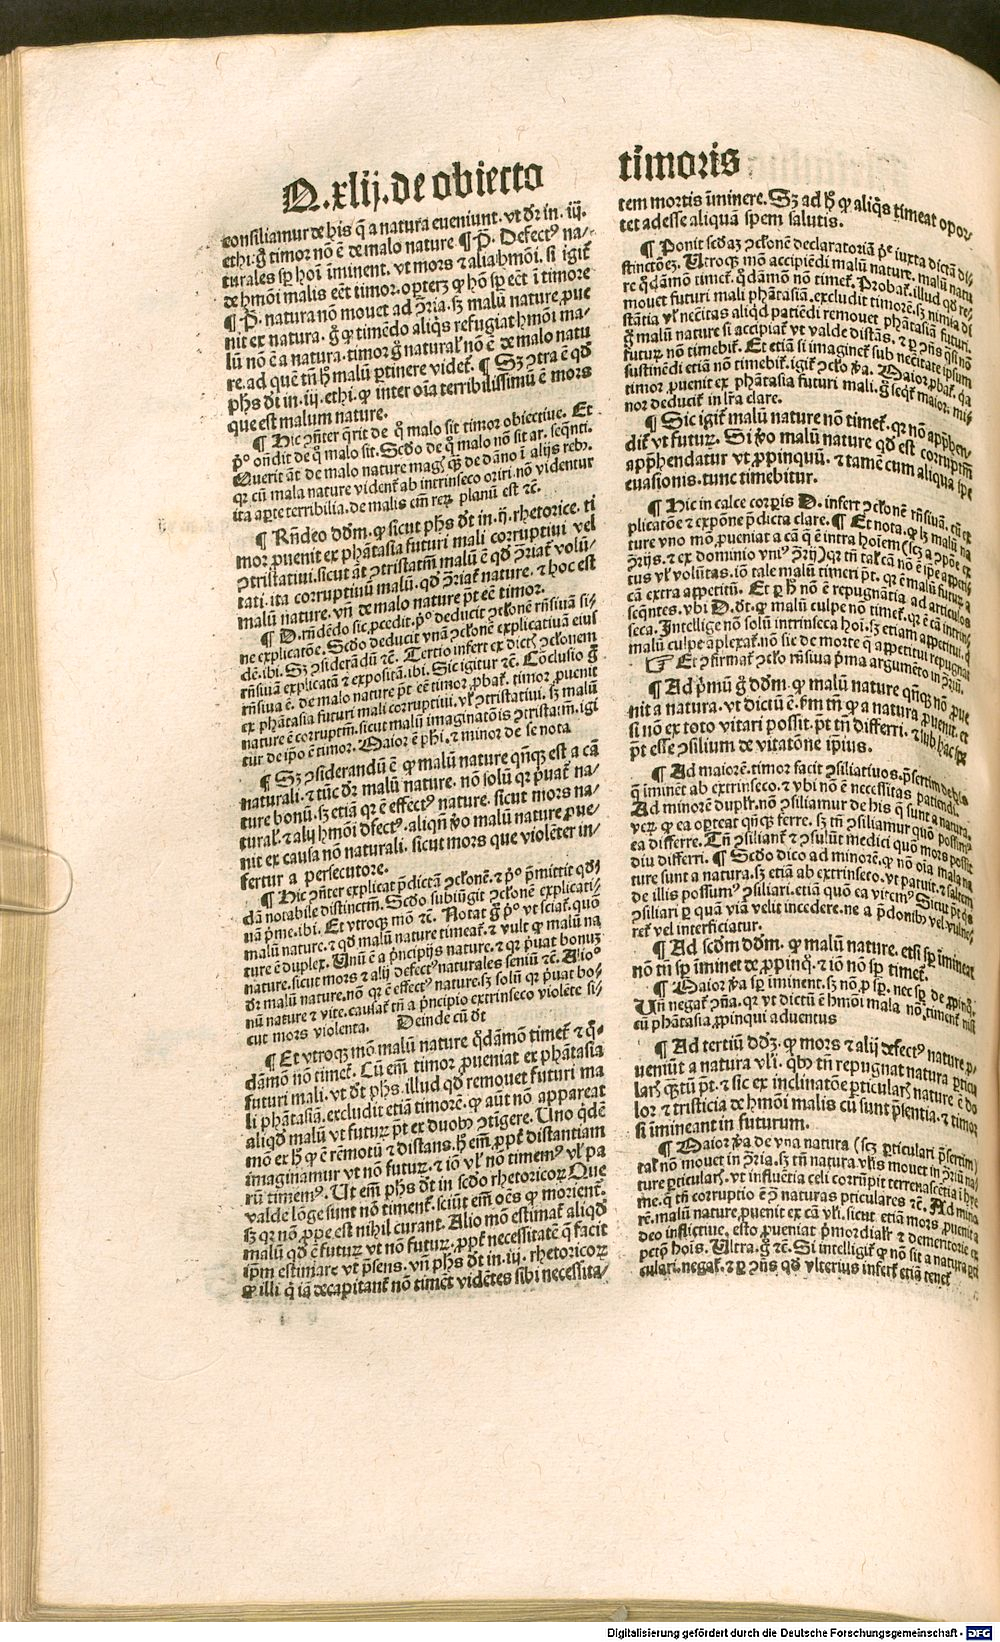 Q. xlij. de obiecto timoris
consiliamur de his q̄ a natura eueniunt. vt dr̄ in. iij.
ethi. g̊ timor nō ē de malo nature ¶ P̄. Defectꝰ na-
turales sp̄ hoī īminent. vt mors ⁊ alia hmōi. si igit̄
de hmōi malis eēt timor. oꝑterꝫ ꝙ hō sp̄ eēt ī timore
¶ P̄. natura nō mouet ad ꝯ̄ria. sꝫ malū nature ꝓue
nit ex natura. g̊ ꝙ timēdo aliq̄s refugiat hmōi ma-
lū nō ē a natura. timor g̊ natural̓ nō ē de malo natu
re. ad quē tn̄ h̄ malū ꝑtinere videt̄. ¶ Sꝫ ꝯtra ē qd̓
ph̄s dt̄ in. iij. ethi. ꝙ inter oīa terribilissimū ē mors
que est malum nature.
¶ Hic ꝯn̄ter q̄rit de q̊ malo sit timor obiectiue. Et
p̊ on̄dit de q̊ malo sit. Scd̓o de q̊ malo nō sit ar. seq̄nti.
Querit aūt de malo nature magꝭ q̄ꝫ de dāno ī alijs rebꝰ.
qr cū mala nature vident̄ ab intrinseco oriri. nō videntur
ita aꝑte terribilia. de malis em̄ reꝝ planū est ⁊c̄.
¶ Rn̄deo dd̓m. ꝙ sicut ph̄s dt̄ in. ij. rhetorice. ti
mor ꝓuenit ex phātasia futuri mali corruptiui vel
ꝯtristatiui. sicut aūt ꝯtristatm̄ malū ē qd̓ ꝯ̄riat̄ volū-
tati. ita corruptiuū malū. qd̓ ꝯ̄riat̄ nature. ⁊ hoc est
malū nature. vn̄ de malo nature pt̄ eē timor.
¶ D. rn̄dēdo sic ꝓcedit. p̊ deducit ꝯclonē rn̄siuā si-
ne explicatōe. Scd̓o deducit vnā ꝯclonē explicatiuā eius
dē. ibi. Sꝫ ꝯsiderādū ⁊c̄. Tertio infert ex dictꝭ ꝯclonem
rn̄siuā explicatā ⁊ expositā. ibi. Sic igitur ⁊c̄. Cōclusio g̊
rn̄siua ē. de malo nature pt̄ eē timor. ꝓbat̄. timor ꝓuenit
ex phātasia futuri mali corruptiui. vl̓ ꝯtristatiui. sꝫ malū
nature ē corruptm̄. sicut malū imaginatōis ꝯtristatm̄. igi
tur de ip̄o ē timor. Maior ē ph̄i. ⁊ minor de se nota
¶ Sꝫ ꝯsiderandū ē ꝙ malū nature qn̄qꝫ est a cā
naturali. ⁊ tūc dr̄ malū nature. nō solū qr ṗuat̄ na-
ture bonū. sꝫ etiā qr ē effectꝰ nature. sicut mors na-
tural̓. ⁊ alij hmōi dfectꝰ. aliqn̄ ꝟo malū nature ꝓue-
nit ex causa nō naturali. sicut mors que violēter in-
fertur a persecutore.
¶ Hic ꝯn̄ter explicat p̄dictā ꝯclonē. ⁊ p̊ p̄mittit qd̓-
dā notabile distinctm̄. Scd̓o subiūgit ꝯclonē explicati-
uā p̄me. ibi. Et vtroqꝫ mō ⁊c̄. Notat g̊ p̊ vt sciat̄. quō
malū nature. ⁊ qd̓ malū nature timeat̄. ⁊ vult ꝙ malū na
ture ē duplex. Unū ē a p̄ncipijs nature. ⁊ qr ṗuat bonuꝫ
nature. sicut mors ⁊ alij defectꝰ naturales seniū ⁊c̄. Alioº
dr̄ malū nature. nō qr ē effectꝰ nature. sꝫ solū qr ṗuat bo-
nū nature ⁊ vite. causat̄ tn̄ a p̄ncipio extrinseco violēte si-
cut mors violenta. Deinde cū dt̄
¶ Et vtroqꝫ mō malū nature q̊dāmō timet̄ ⁊ q̊-
dāmō nō timet̄. Cū em̄ timor ꝓueniat ex phātasia
futuri mali. vt dt̄ ph̄s. illud qd̓ remouet futuri ma
li phātasiā. excludit etiā timorē. ꝙ aūt nō appareat
aliqd̓ malū vt futuꝝ pt̄ ex duobꝰ ꝯtīgere. Uno q̇dē
mō ex h̄ ꝙ ē rēmotū ⁊ distans. h̄ em̄ ꝓpt̄ distantiam
imaginamur vt nō futuꝝ. ⁊ iō vl̓ nō timemꝰ vl̓ pa
rū timemꝰ. Ut em̄ ph̄s dt̄ in scd̓o rhetoricoꝝ Que
valde lōge sunt nō timent̄. sciūt em̄ oēs ꝙ morient̄.
sꝫ qr nō ꝓpe est nihil curant. Alio mō estimat̄ aliqd̓
malū qd̓ ē futuꝝ vt nō futuꝝ. ꝓpt̄ necessitatē q̄ facit
ip̄m estimare vt p̄sens. vn̄ ph̄s dt̄ in. ij. rhetoricoꝝ
ꝙ illi q̇ iā decapitant̄ nō timēt vidētes sibi necessita-
tem mortis īminere. Sꝫ ad h̄ ꝙ aliq̄s timeat opor-
tet adesse aliquā spem salutis.
¶ Ponit scd̓aꝫ ꝯclonē declaratoriā p̄e iuxta dictā di-
stinctōeꝫ. Utroqꝫ mō accipiēdi malū nature. malū natu
re q̊dāmō timet̄. q̊dāmō nō timet̄. Probat̄. illud qd̓ re-
mouet futuri mali phātasiā. excludit timorē. sꝫ nimia di
stātia vl̓ necītas aliqd̓ patiēdi remouet phātasiā futuri.
g̊ malū nature si accipiat̄ vt valde distās. ⁊ ꝑ ꝯn̄s q̄si nō
futuꝝ nō timebit̄. Et etiā si imaginet̄ sub necītate ipsum
sustinēdi etiā nō timebit̄. igit̄ ꝯclo ꝟa. Maior ꝓbat̄. qa
timor ꝓuenit ex phātasia futuri mali. g̊ seqt̄ maior. mi-
nor deducit̄ in lr̄a clare.
¶ Sic igit̄ malū nature nō timet̄. qr nō app̄hen-
dit̄ vt futuꝝ. Si ꝟo malū nature qd̓ est corruptm̄
app̄hendatur vt ꝓpinquū. ⁊ tamē cum aliqua spe
euasionis. tunc timebitur.
¶ Hic in calce corꝑis D. infert ꝯclonē rn̄siuā. cū ex
plicatōe ⁊ expōne p̄dicta clare. ¶ Et nota. ꝙ lꝫ malū na
ture vno mō ꝓueniat a cā q̄ ē intra hoīem (scꝫ a ꝯpōe ex
ꝯ̄rijs. ⁊ ex dominio vniꝰ ꝯ̄rij) qr tn̄ tal̓ cā nō ē ip̄e appeti-
tus vl̓ volūtas. iō tale malū timeri pt̄. qr ē malū futuꝝ a
cā extra appetitū. Et ꝑ h̄ nō ē repugnātia ad articulos
seq̄ntes. vbi D. dt̄. ꝙ malū culpe nō timet̄. qr ē cā intrin-
seca. Intellige nō solū intrinseca hoi. sꝫ etiam appetitui. q̇
malū culpe aplexat̄. nō sic de morte q̄ appetitui repugnat
☞ Et ꝯfirmat̄ ꝯclo rn̄siua p̄ma argumēto in ꝯ̄riū.
¶ Ad p̄mū g̊ dd̓m. ꝙ malū nature qn̄qꝫ nō ꝓue
nit a natura. vt dictū ē. ẜm tn̄ ꝙ a natura ꝓuenit. et
si nō ex toto vitari possit. pt̄ tn̄ differri. ⁊ sub hac spe
pt̄ esse ꝯsilium de vitatōne ip̄ius.
¶ Ad maiorē. timor facit ꝯsiliatiuos. p̄sertim de his
q̄ īminēt ab extrinseco. ⁊ vbi nō ē necessitas patiendi.
Ad minorē dupl̓r. nō ꝯsiliamur de his q̄ sunt a natura.
veꝝ ꝙ ea oꝑteat qn̄qꝫ ferre. sꝫ tn̄ ꝯsiliamur quō possimꝰ
ea differre. Tn̄ ꝯsiliant̄ ⁊ ꝯsulūt medici quō mors possit
diu differri. ¶ Scd̓o dico ad minorē. ꝙ nō oīa mala na
ture sunt a natura. sꝫ etiā ab extrinseco. vt patuit. ⁊ saltem
de illis possumꝰ ꝯsiliari. etiā quō ea vitemꝰ Sicut pt̄ qs
ꝯsiliari ꝑ quā viā velit incedere. ne a p̄donibꝰ vel vulne-
ret̄ vel interficiatur.
¶ Ad scd̓m dd̓m. ꝙ malū nature. etsi sp̄ īmineat
nō tn̄ sp̄ īminet de ꝓpinq̊. ⁊ iō nō sp̄ timet̄.
¶ Maior ꝟa sp̄ iminent. sꝫ nō ꝓ sp̄. nec sp̄ de ꝓpinq̊.
Un̄ negat̄ ꝯn̄a. qr vt dictū ē hmōi mala nō timent̄ nisi
cū phātasia ꝓpinqui aduentus
¶ Ad tertiū dd̓ꝫ. ꝙ mors ⁊ alij defectꝰ nature ꝓ-
ueniūt a natura vl̓i. qbꝰ tn̄ repugnat natura ꝑticu
lar̄ quātū pt̄. ⁊ sic ex inclinatōe ꝑticularꝭ nature ē do
lor ⁊ tristicia de hmōi malis cū sunt p̄sentia. ⁊ timor
si īmineant in futurum.
¶ Maior ꝟa de vna natura (scꝫ ꝑticulari p̄sertim)
tal̓ nō mouet in ꝯ̄ria. sꝫ tn̄ natura vl̓is mouet in ꝯ̄riū na-
ture ꝑticularꝭ. vt influētia celi corrūpit terrenascētia ī hye
me. q̄ tn̄ corruptio ē ꝯ naturas ꝑticulares ⁊c̄. Ad mino
rē. malū nature ꝓuenit ex cā vl̓i. sicut etiā mors ꝓuenit a
deo inflictiue. esto ꝓueniat p̄mordialr̄ ⁊ demeritorie ex
pctō hoīs. Ultra. g̊ ⁊c̄. Si intelligit̄ ꝙ nō sit a natura ꝑti
culari. negat̄. ⁊ ꝑ ꝯn̄s qd̓ vlterius infert̄ etiā tenet̄
Digitalisierung gefördert durch die Deutsche Forschungsgemeinschaft - DFG